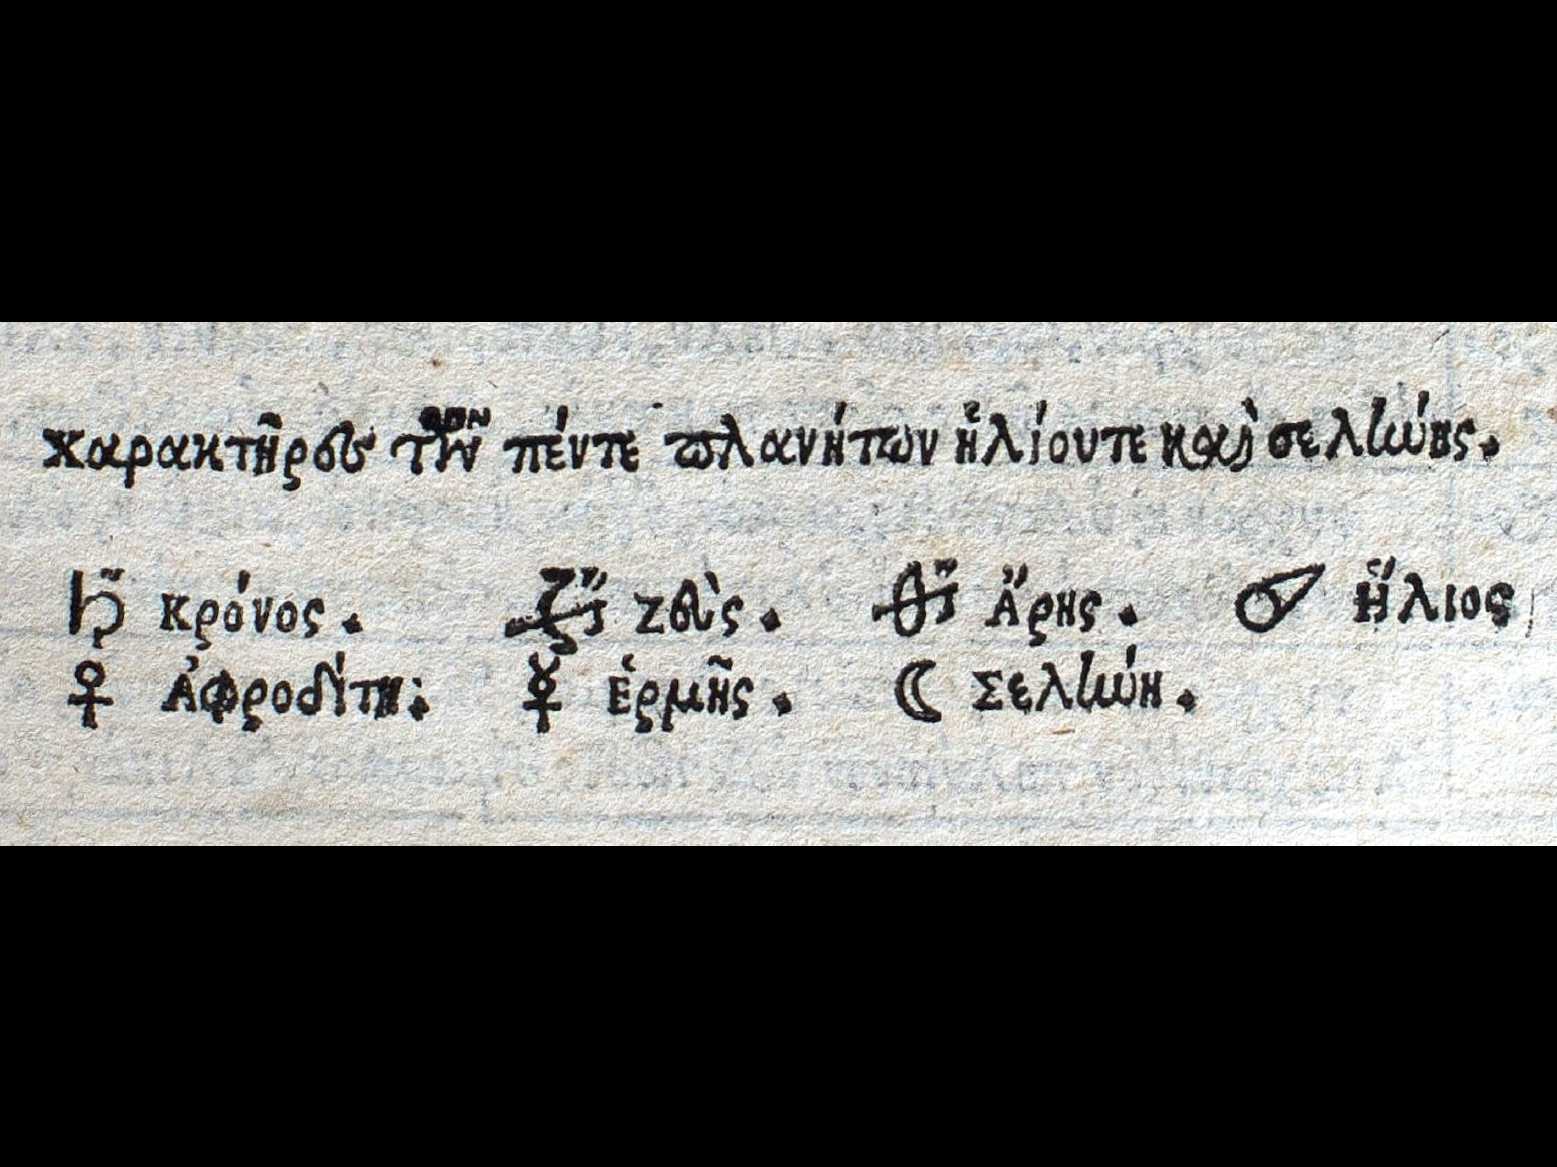 χαρακτῆρες τῶν πέντε πλανήτων ἡλίου τε καὶ σελήνης.
♄ κρόνος. Ζεὺς. Ἄρης. Ἥλιος
♀ Ἀφροδίτη: ☿ Ἑρμῆς. ☾ Σελήνη.